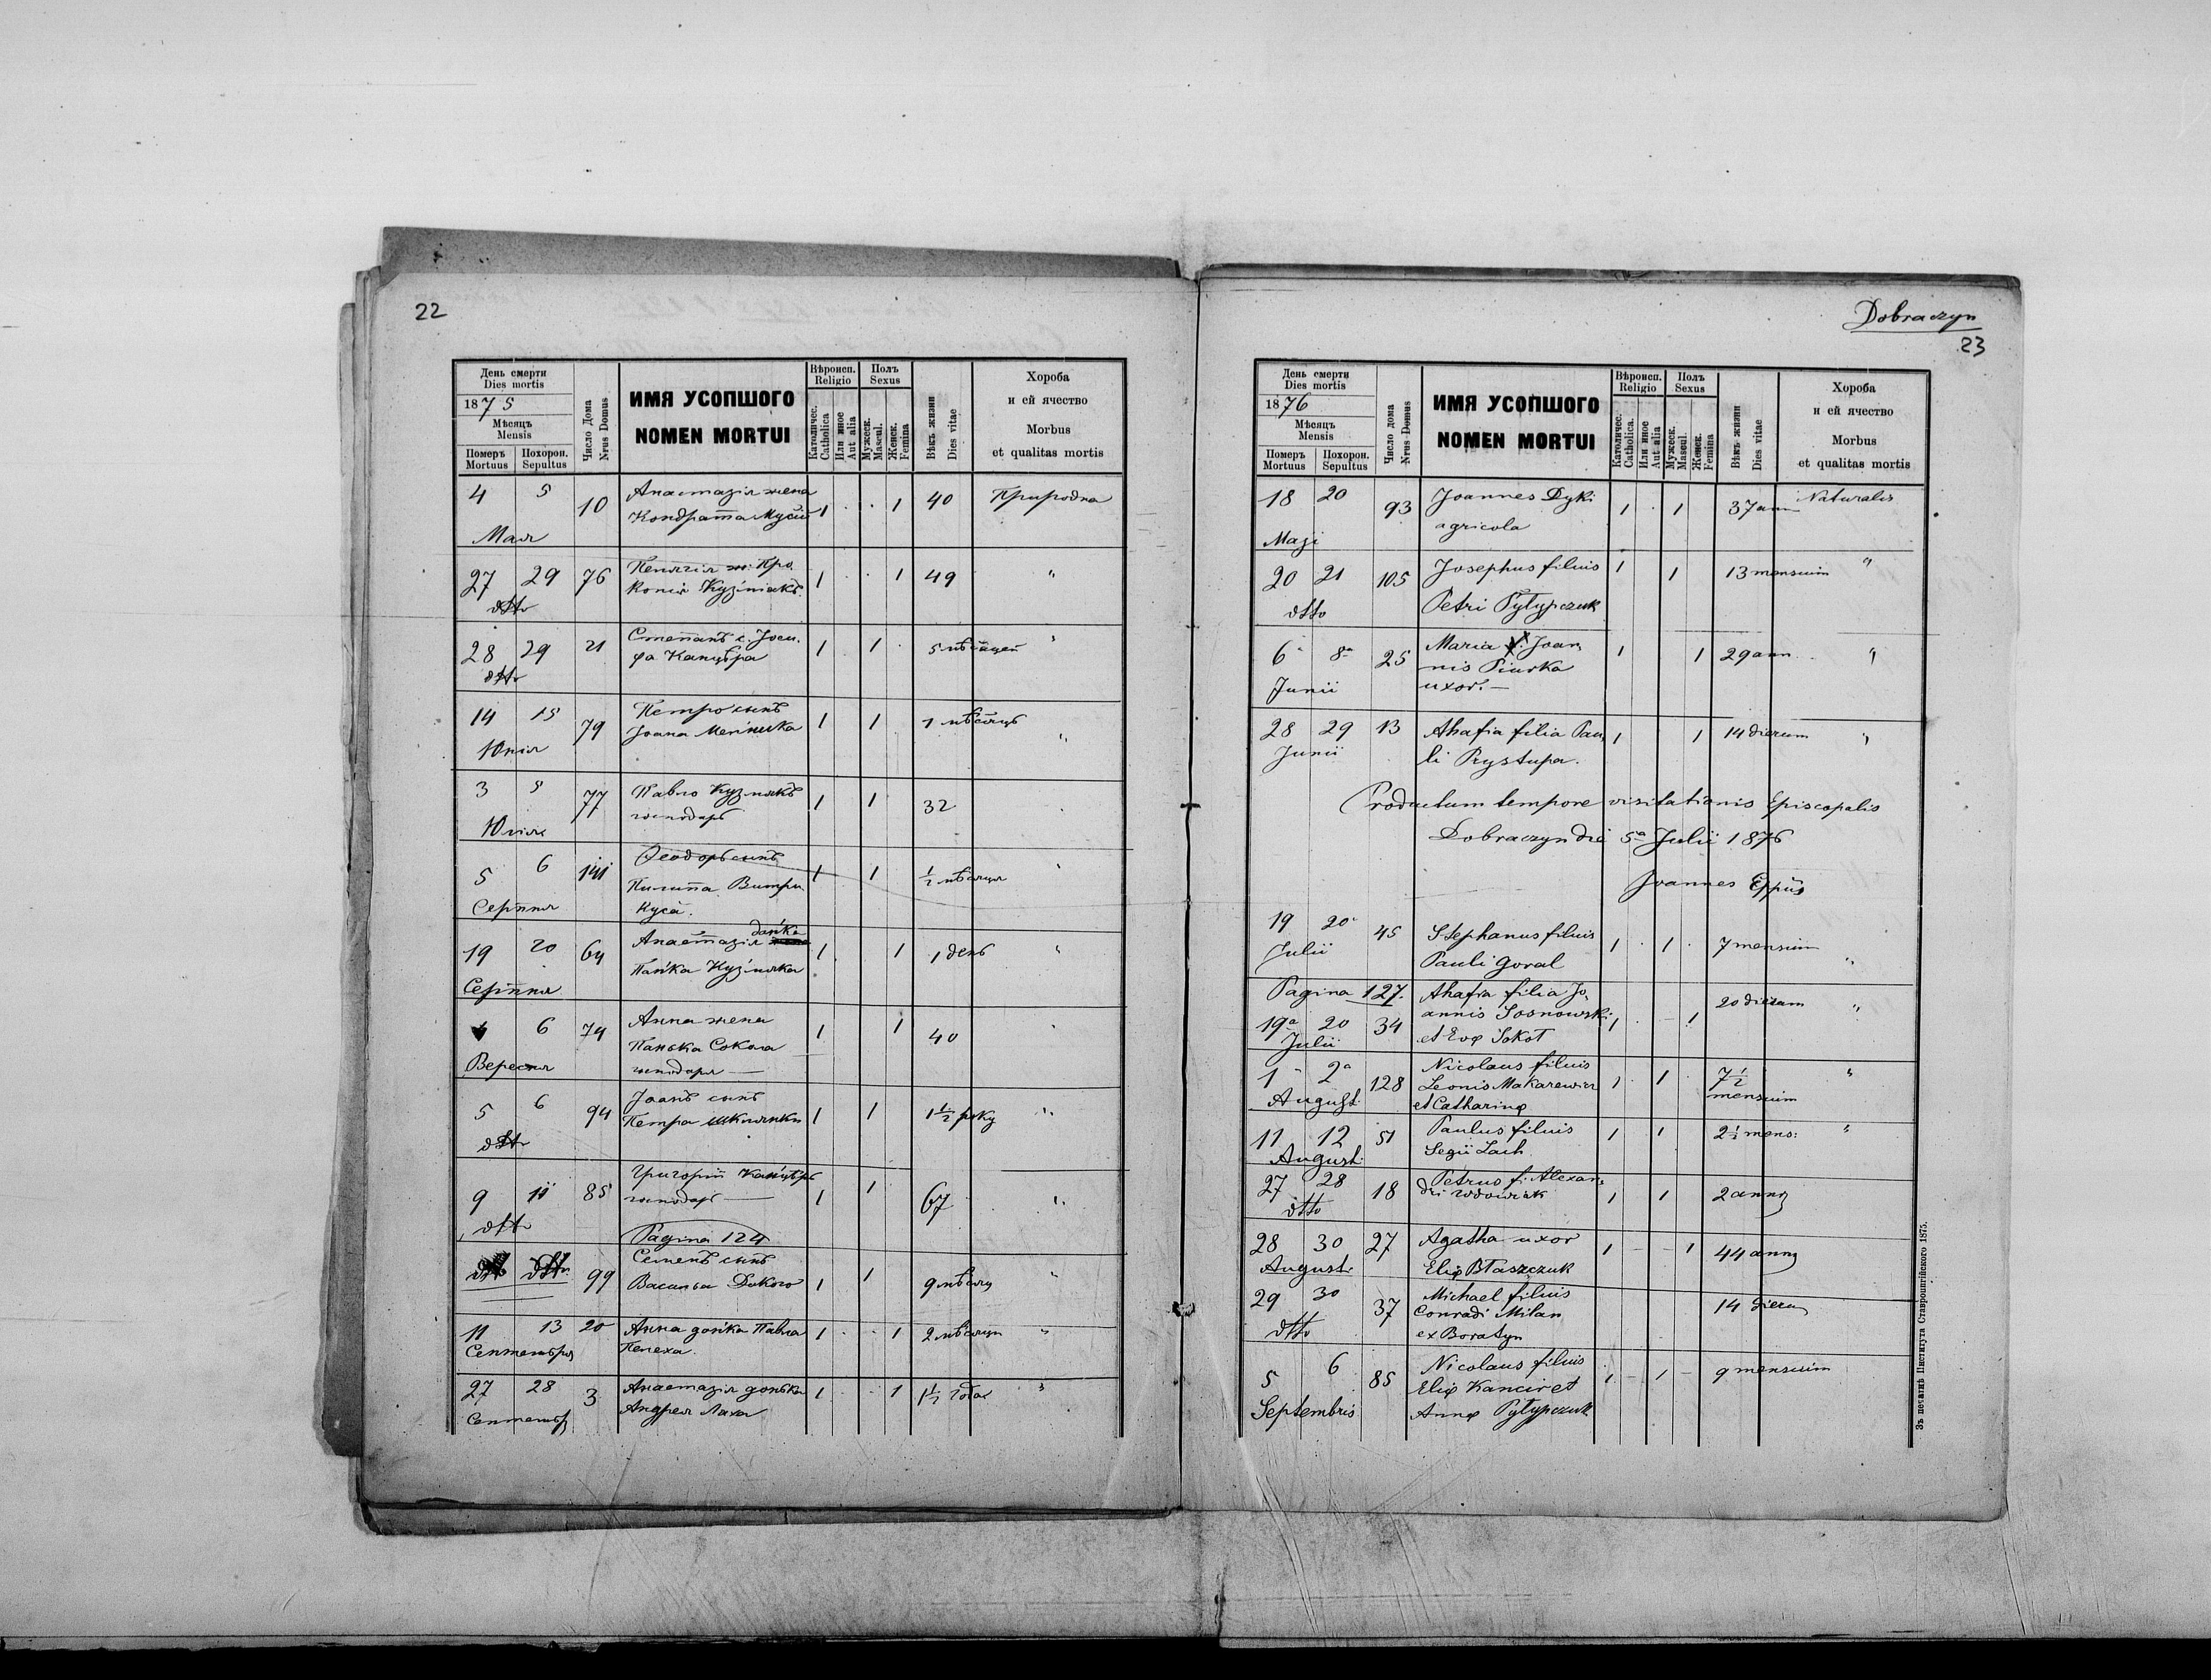 22
День смерти
Dies mortis
1875
Мѣсяцъ
Mensis
Померъ
Mortuus
Похорон.
Sepultus
Число Дома
Nrus Domus
ИМЯ УСОПШОГО
NOMEN MORTUI
Вѣроисп.
Religio
Католичес.
Catholica
Или иное
Aut alia
Полъ
Sexus
Мужеск.
Mascul.
Женск.
Femina
Вѣкъ жизни
Dies vitae
Хороба
и ей ячество
Morbus
et qualitas mortis
4 5 10 Анастазія жена 1 · · 1 40 Природна
Кондрата Мусій
Мая
27 29 76 ж. Про 1 · · 1 49 "
копія Кузьнякъ
dtto
28 29 21 Степанъ с. Йоси 1 · 1 · 5 мѣсяцей "
фа Канцѣра
dtto
14 15 79 Петро сынъ 1 1 1 мѣсяцъ "
Іоана
Юнія
3 5 77 Павло Кузьнякъ 1 1 32
господарь
Юлія
5 6 141 Ѳеодоръ сынъ 1 1 ½ мѣсяця "
Пилипа
Серпня
19 20 64 Анастазія донька 1 1 1 день "
Панька Кузьняка
Серпня
6 74 Анна жена 1 1 40 "
Панька Сокола
господаря —
Вересня
5 6 94 Іоанъ сынъ 1 1 1½ року "
Петра
dtto
9 11 85 Григорій Канцѣръ 1 1 67 "
господарь —
dtto
Pagina 124
dtto 99 Семенъ сынъ 1 1 9 мѣсяц "
Василья Дикого
11 13 20 Анна донька Павла 1 · · 1 2 мѣсяци "
Пелеха.
Септембрія
27 28 3 Анастазія донька 1 · · 1 1½ года "
Андрея Лаха
Септембр
Dobraczyn
23
День смерти
Dies mortis
1876
Мѣсяцъ
Mensis
Померъ
Mortuus
Похорон.
Sepultus
Число дома
Nrus Domus
ИМЯ УСОПШОГО
NOMEN MORTUI
Вѣроисп.
Religio
Католичес.
Catholica.
Или иное
Aut alia
Полъ
Sexus
Мужеск.
Mascul.
Женск.
Femina
Вѣкъ жизни
Dies vitae
Хороба
и ей ячество
Morbus
et qualitas mortis
18 20 93 Joannes Dyki 1 · 1 37 ann Naturalis
agricola
Maji
20 21 105 Josephus filius 1 1 13 mensium "
Petri Pyłypczuk
dtto
6 8 25 Maria Joan 1 1 29 ann. "
nis Piurka
uxor. —
Junii
28 29 13 Ahafia filia Pau 1 1 14 dierum "
li Prystupa.
Junii
Productum tempore visitationis Episcopalis
Dobraczyn die 5ª Julii 1876
Joannes Eppus
19 20 45 Stephanus filius 1 · 1 · 7 mensium "
Pauli Goral
Julii
Pagina 127.
19ª 20 34 Ahafia filia Jo 1 · — 1 20 dierum "
annis Sosnowski
et Evę Sokoł
Julii
1 2ª 128 Nicolaus filius 1 · 1 · 7½ mensium "
Leonis Makarewicz
et Catharinę
August.
11 12 51 Paulus filius 1 1 2½ mens: "
Segii Lach
August.
27 28 18 Petrus f. Alexan 1 1 2 anno
dri Wdowiak
dtto
28 30 27 Agatha uxor 1 — — 1 44 anno
Elię Błaszczuk
August.
29 30 37 Michael filius 14 dieru
Conradi Milan
ex Boratyn
dtto
5 6 85 Nicolaus filius 1 — 1 — 9 mensium
Elię Kancir et
Annę Pyłypczuk
Septembris
Зъ печатнѣ Института Ставропигійского 1875.